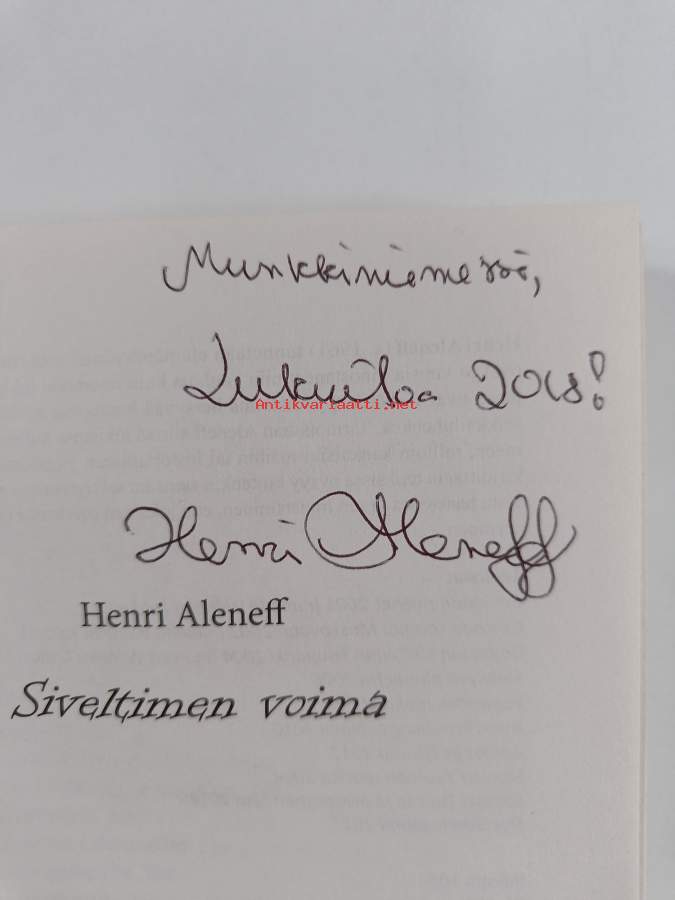 Munkkiniemessä,
Lukuiloa 2018!
Antikvariaatti.net
Henri Aleneff
Henri Aleneff
Siveltimen voima